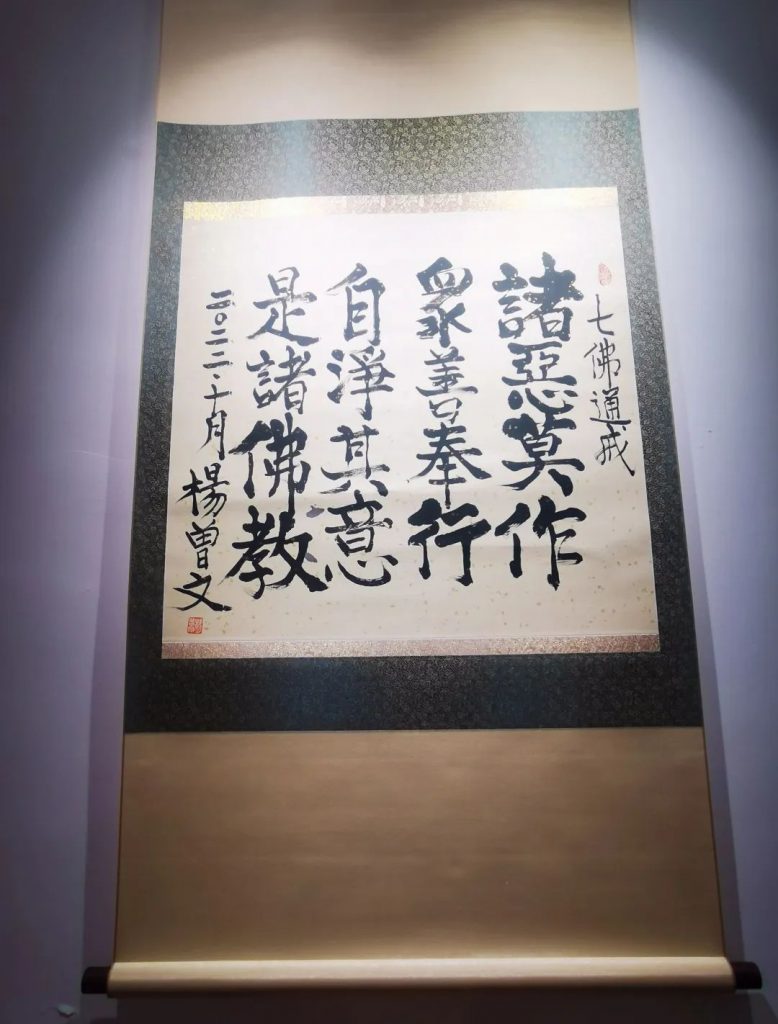 七佛通戒
諸惡莫作
眾善奉行
自淨其意
是諸佛教
二〇二二、十月 楊曾文